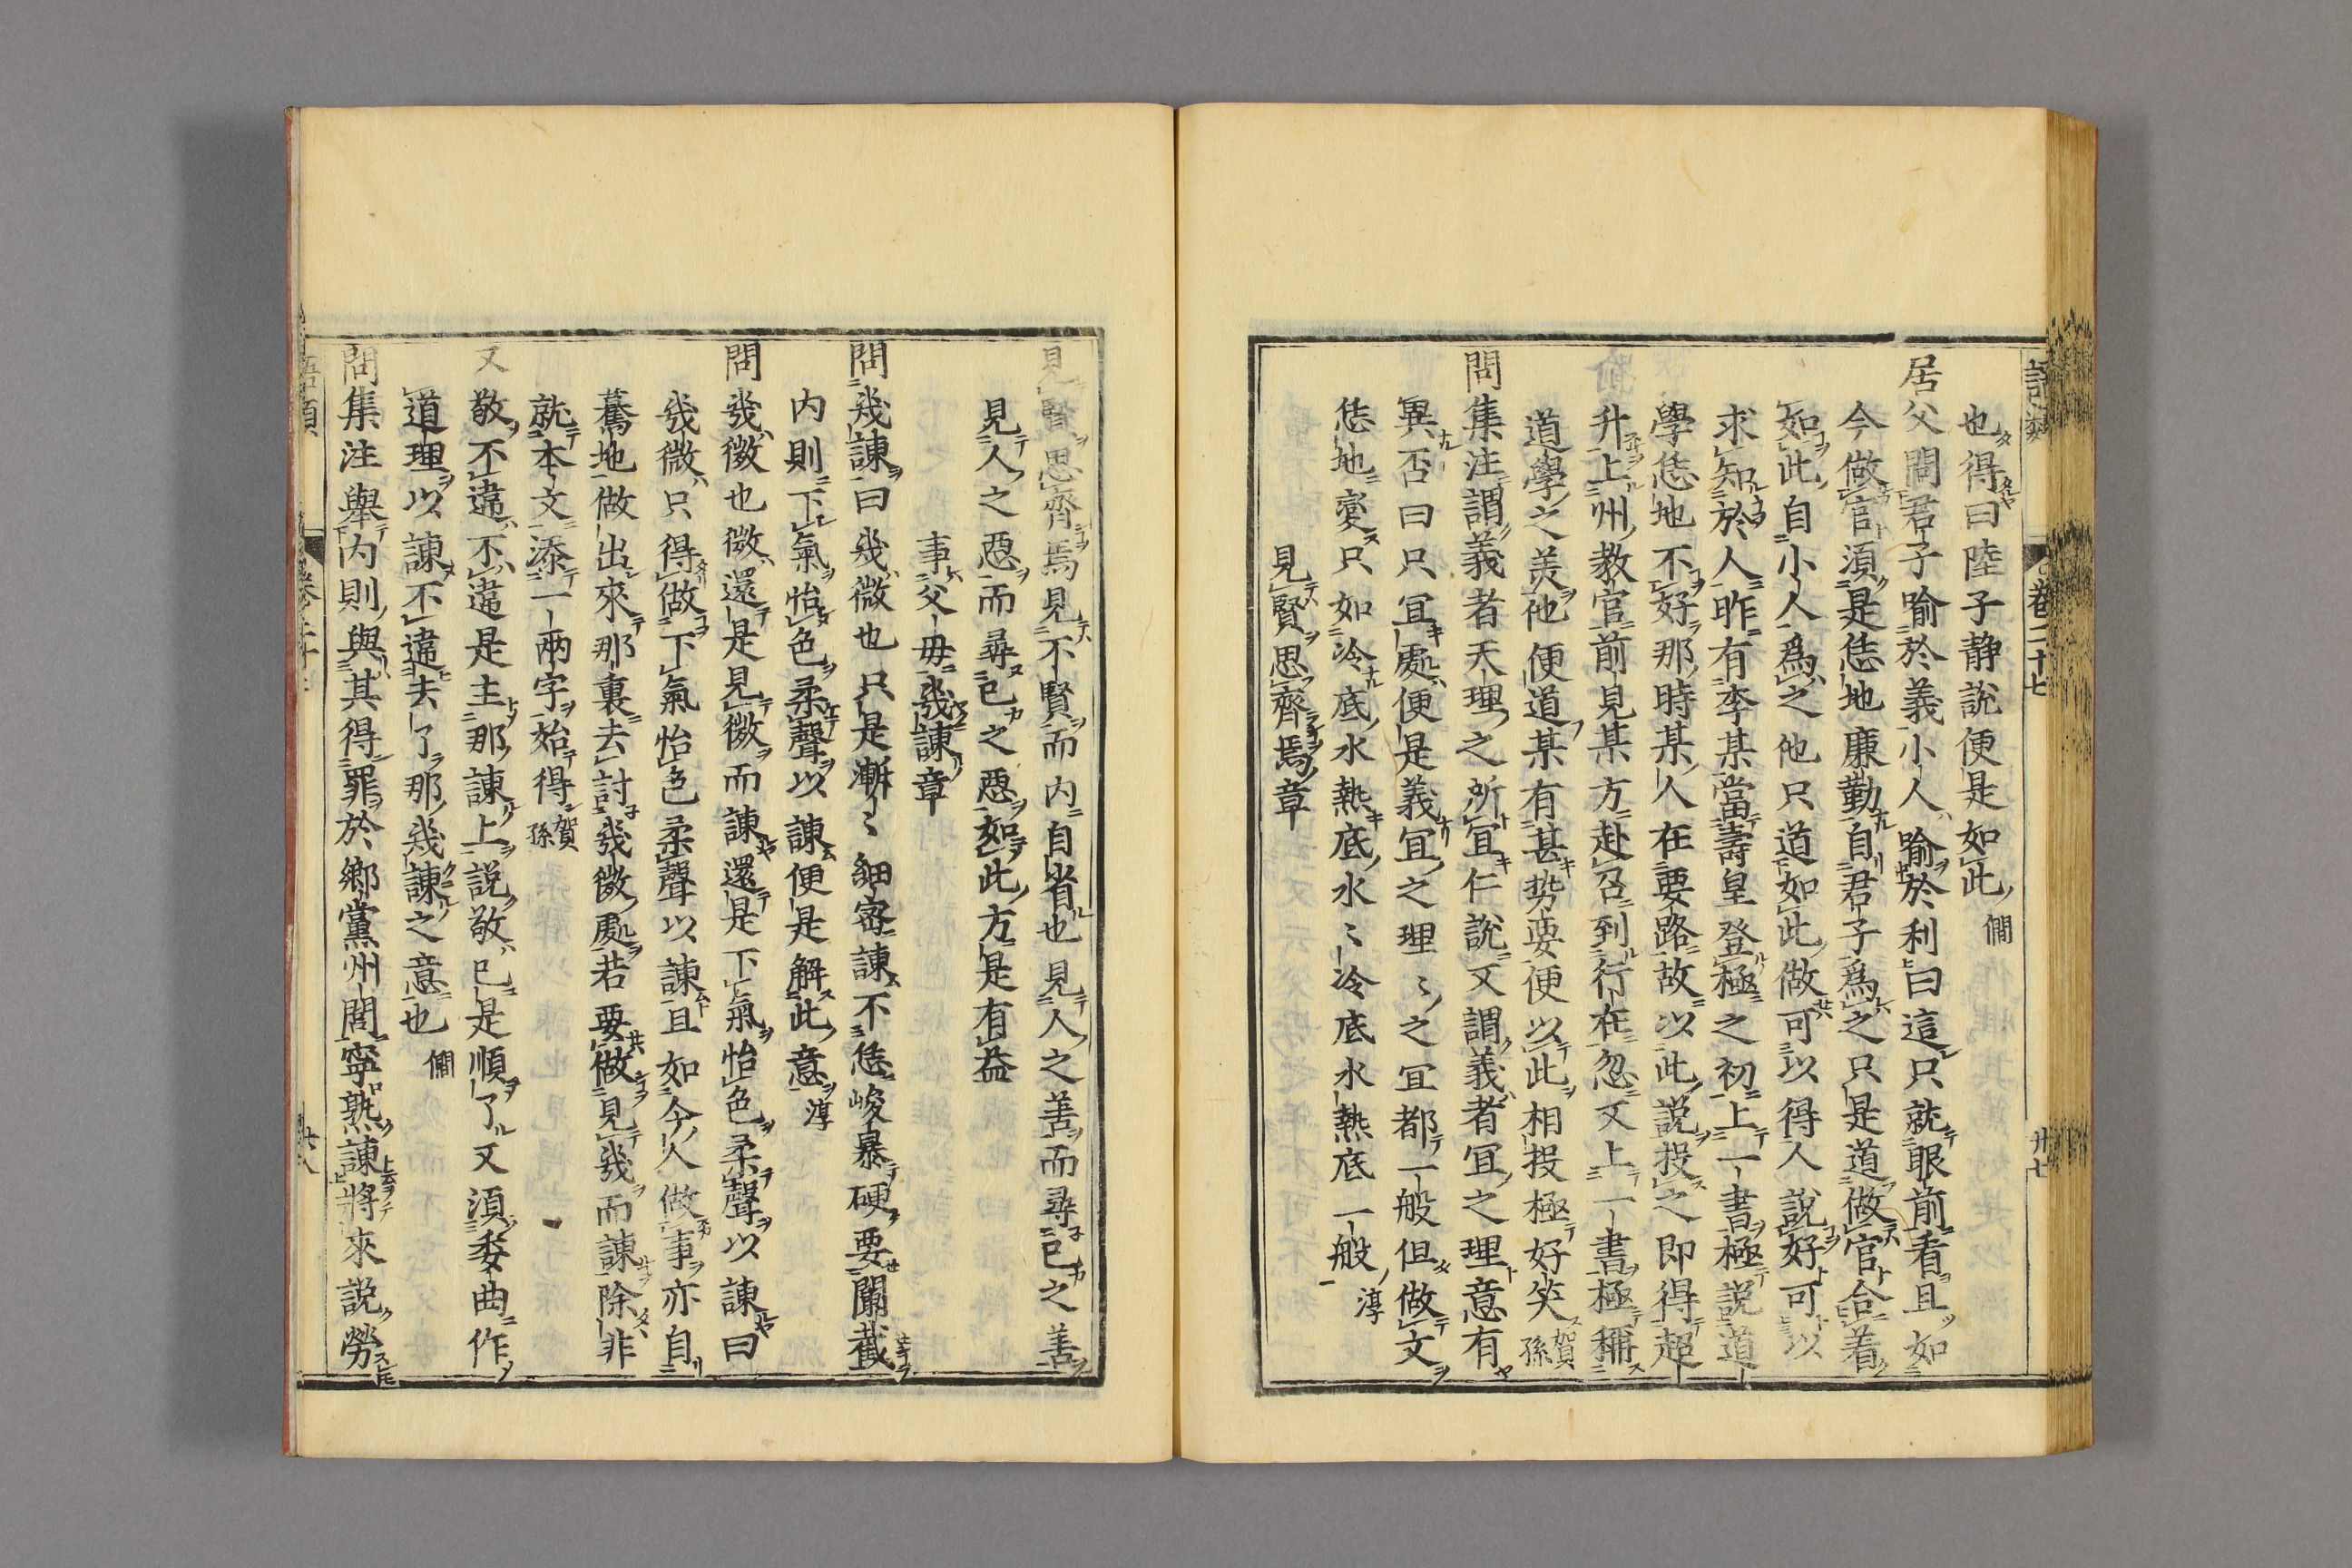 語類 卷二十七 卅七
也得曰陸子静說便是如此僩
居父問君子喻於義小人喻於利曰這只就眼前看且如
今做官須是恁地廉勤自君子爲之只是道做官合着
如此自小人爲之他只道如此做可以得人說好可以
求知於人昨有李某當壽皇登極之初上一書極説道
學恁地不好那時某人在要路故以此説投之即得超
升上州教官前見某方赴召到行在忽又上一書極稱
道學之美他便道某有甚勢要便以此相投極好笑賀孫
問集注謂義者天理之所宜仁說又謂義者宜之理意有
異否曰只宜處便是義宜之理理之宜都一般但做文
恁地變只如冷底水熱底水水冷底水熱底一般淳
見賢思齊焉章
見賢思齊焉見不賢而内自省也見人之善而尋己之善
見人之惡而尋己之惡如此方是有益
事父母幾諫章
問幾諫曰幾微也只是漸漸細密諫不恁峻暴硬要闌截
内則下氣怡色柔聲以諫便是解此意淳
問幾微也微還是見微而諫還是下氣怡色柔聲以諫曰
幾微只得做下氣怡色柔聲以諫且如今人做事亦自
驀地做出來那裏去討幾微處若要做見幾而諫除非
就本文添一兩字始得賀孫
又敬不違不違是主那諫上説敬已是順了又須委曲作
道理以諫不違去了那幾諫之意也僩
問集注舉内則與其得罪於鄉黨州閭寧熟諫將來説勞
語類